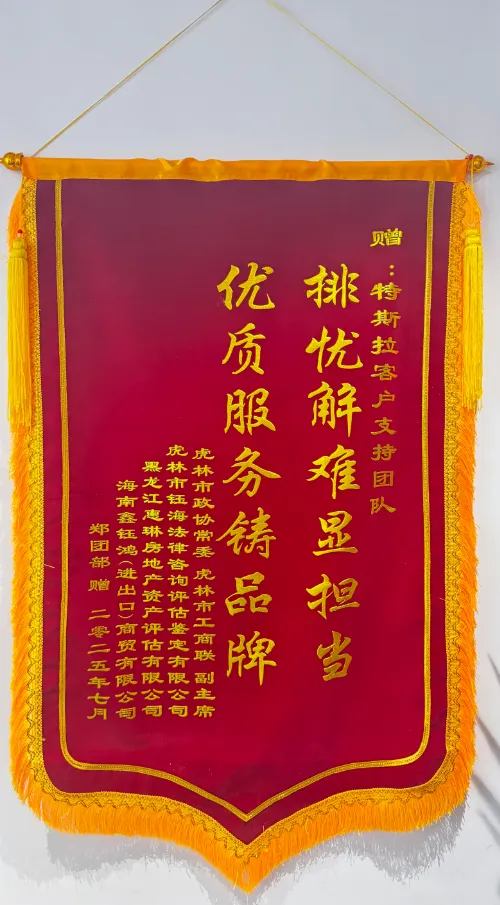 赠：特斯拉客户支持团队
排忧解难显担当
优质服务铸品牌
虎林市政协常委 虎林市工商联 副主席
虎林市钰海法律咨询评估鉴定有限公司
黑龙江惠琳房地产资产评估有限公司
海南鑫钰鸿(进出口)商贸有限公司
郑团部 赠 二零二五年七月